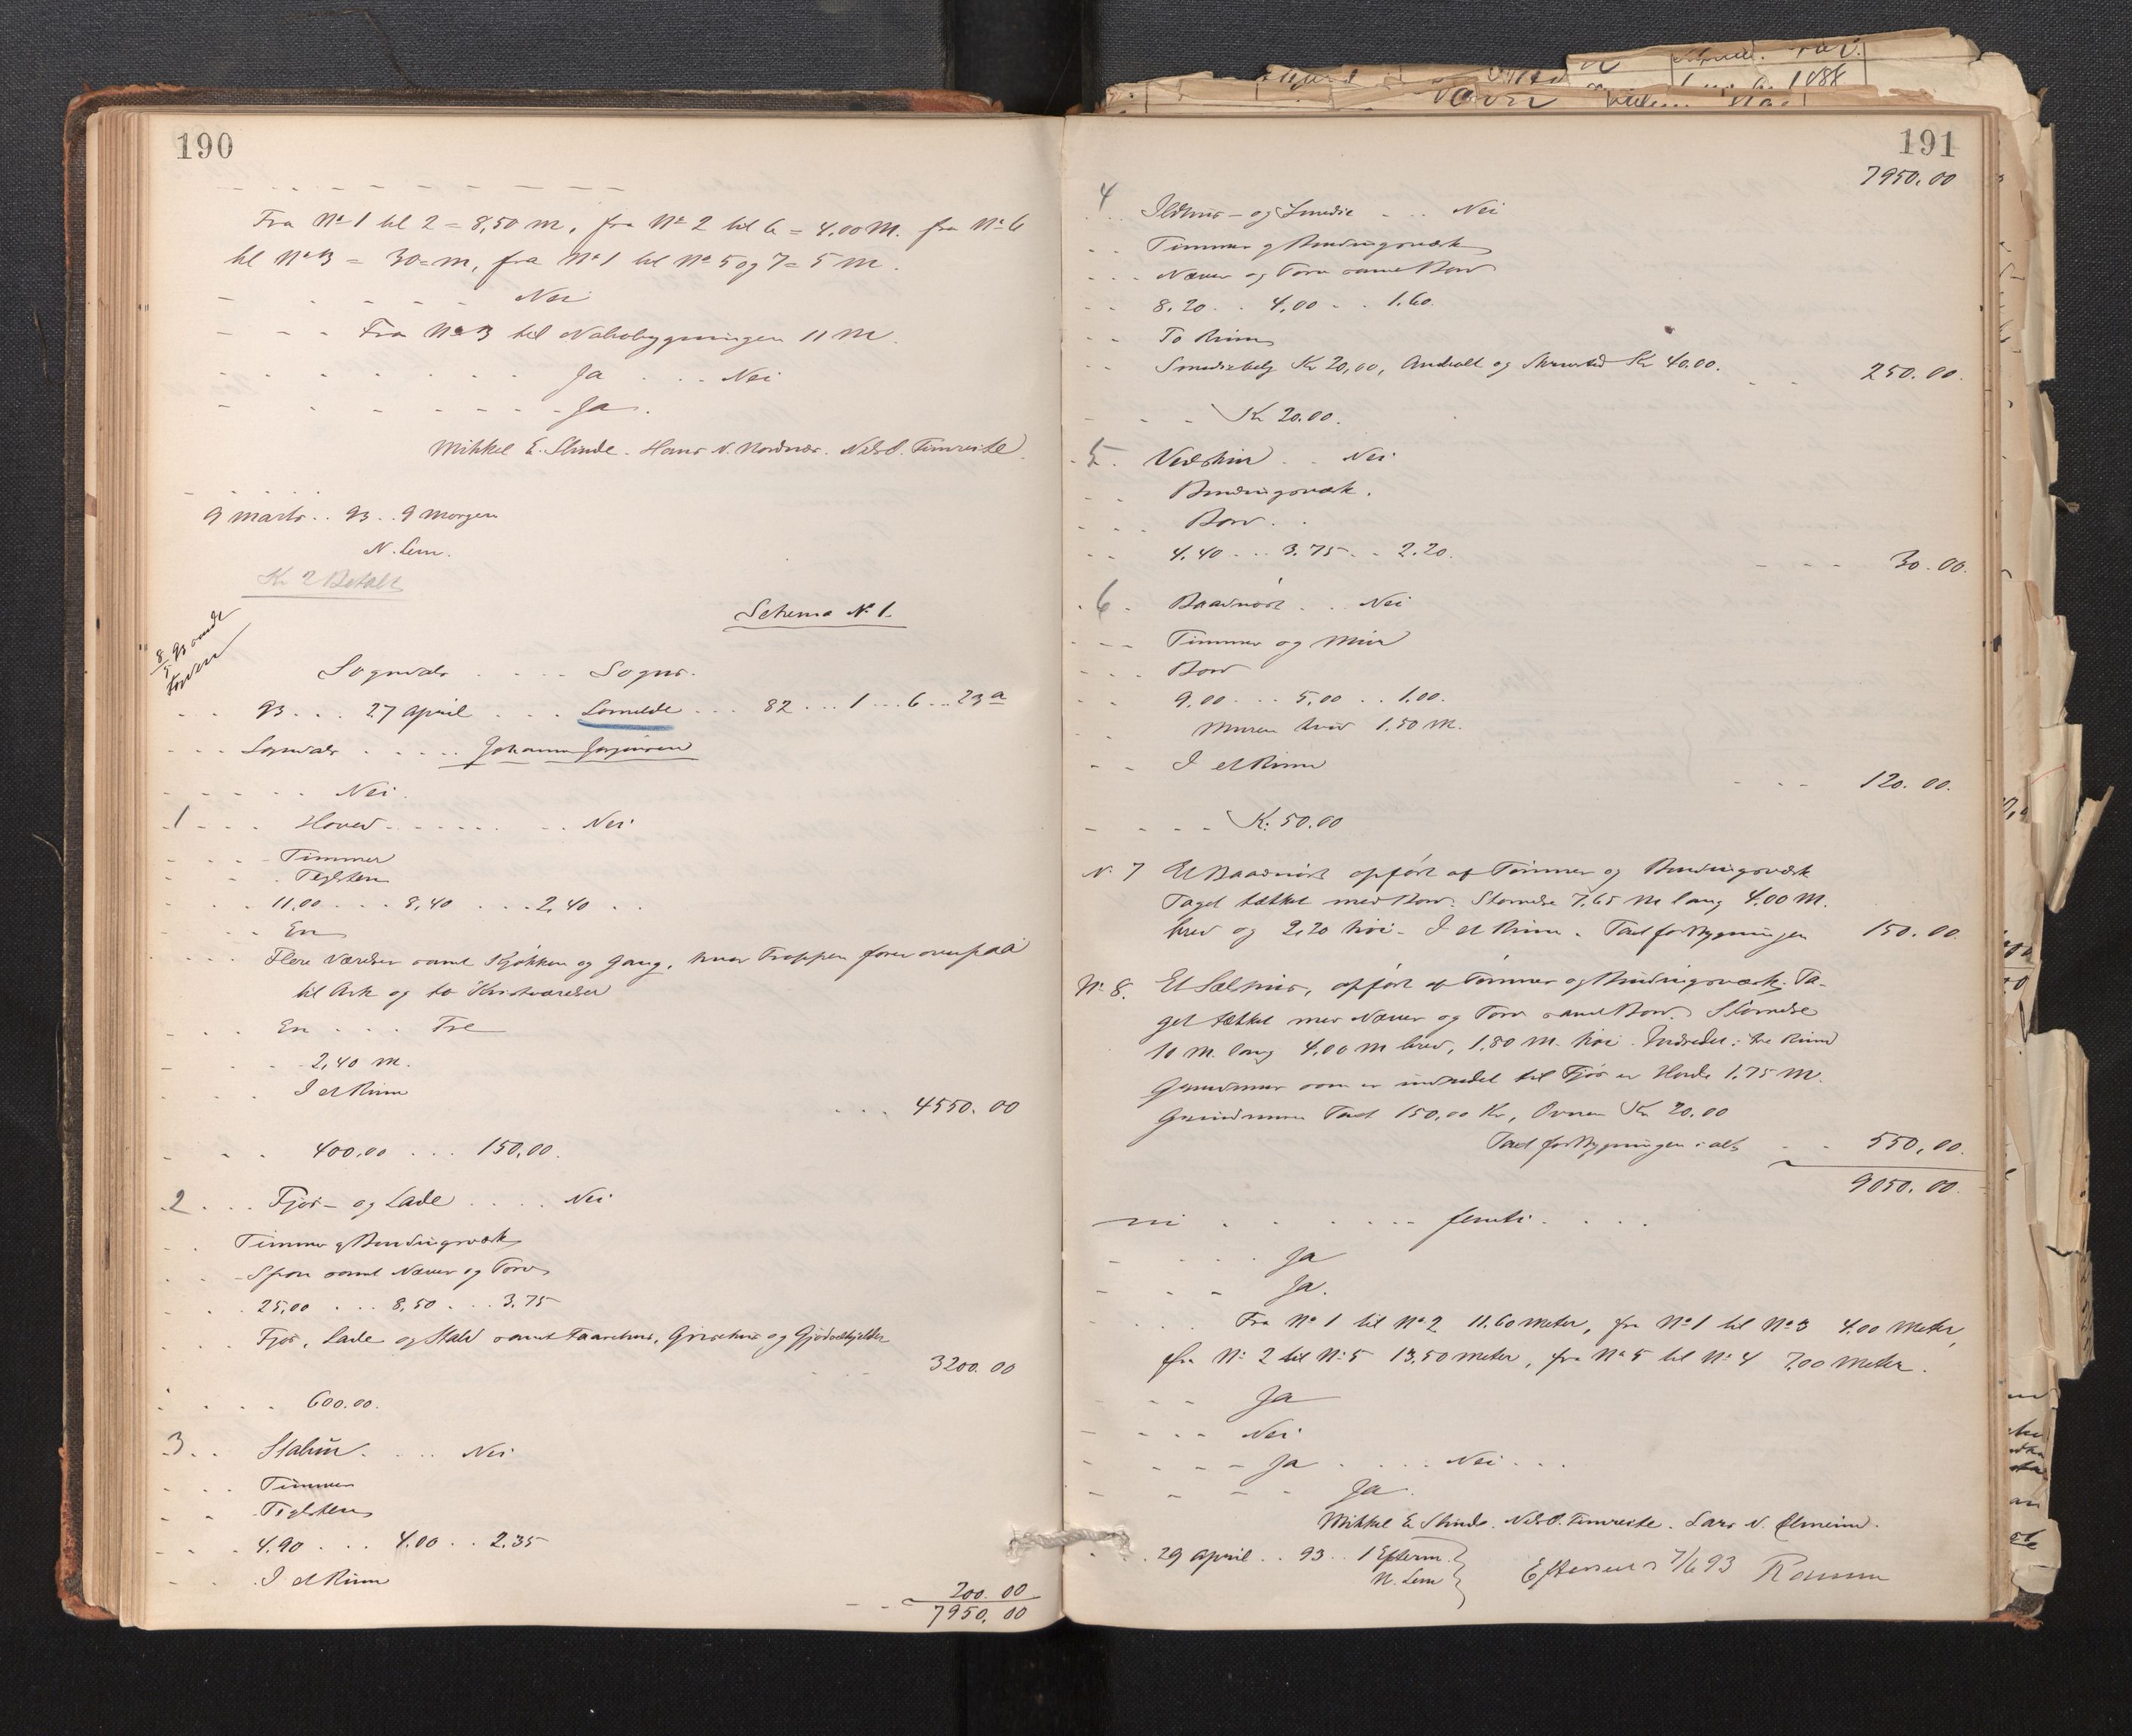 190
Fra No 1 til 2 = 8,50 m, fra No 2 til 6 = 4,00 M. fra No 6
til No 3 = 30 = m, fra No 1 til No 5 og 7 = 5 M.
Nei
Fra No 3 til Nabobygningen 11 M.
Ja . . . Nei
Ja.
Mikkel E. Slinde. Hans N. Nordnæs. Nils O. Timreite.
9 marts . . 93 . . 9 Morgen
N. Lem.
Kr 2 Betalt
8/5 93 sendt
Schema No 1.
Sogndals . . . . Sogns.
93 . . . 27 April . . . Lomelde . . . 82 . . . 1 . . . 6 . . 23 a
Sogndals . . . . . Johannes Jørgensen
Nei.
1 . . . Hoved . . . . . . Nei
Timmer
Teglsten
11,00 . . . 8,40 . . . 2,40 . .
En
Flere Værelser samt Kjøkken og Gang, hvor Trappen fører ovenpaa
til Ark og to Kvistværelser
En . . . . Tre
2,40 m.
I et Rum
. . . 4550.00
400,00 . . . 150,00.
2 . . . Fjøs- og Lade . . . . Nei
Timmer og Bindingsværk
Spon samt Næver og Torv
25,00 . . . 8,50 . . . 3.75
Fjøs, Lade og Stald samt Faarehus, Grisehus og Gjødselkjelder
3200.00
600.00.
3 . . Stabur . . . . Nei
Timmer
Teglsten
4.90 . . . 4.00 . . 2.35
I et Rum
200.00
7950.00
191
7950.00
4 Ildhus- og Smedie . . . Nei
Timmer og Bindingsværk
Næver og Torv samt Bord
8.20 . . 4,00 . . 1.60.
To Rum
Smediebelg Kr 20,00, Ambolt og Skrusted Kr 40.00.
250.00.
Kr 20.00.
5. Vedskur . . Nei
Bindingsværk.
Bord . .
4.40 . . . 3.75 . . 2.20.
30.00.
6. Baadnøst . . Nei
Timmer og Mur
Bord
9.00 . . . 5,00 . . 1.00.
Muren hvid 1.50 M.
I et Rum
120.00.
Kr. 50.00
N. 7 Et Baadnøst opført af Tømmer og Bindingsværk
Taget tækket med Bord. Størrelse 7.65 M lang 4.00 M.
bred og 2,20 høi. I et Rum. Taxt for Bygningen 150.00
No 8. Et Sælhus, opført af Tømmer og Bindingsværk. Ta-
get tækket med Næver og Torv samt Bord. Størrelse
10 M. lang 4.00 M bred, 1.80 M. høi. Indredet i tre Rum
Grundmur som er indredet til Fjøs er Høide 1.75 M.
Grundmuren Taxt 150,00 Kr, Ovnen Kr 20.00
Taxt for Bygningen i alt . . 550,00.
9050.00.
ni . . . . . . . femti . . . .
Ja
Ja.
Fra No 1 til No 2 11.60 meter, fra No 1 til No 3 4.00 meter,
fra No 2 til No 5 13,50 meter, fra No 5 til No 4 7.00 meter.
Ja
Nei
Ja . . . . Nei . . .
Ja.
Mikkel E. Slinde. Nils O. Timreite. Lars N. Elmeim.
29 April . . 93 . . 1 Efterm.
N. Lem
Efterseet 7/6 93
1888